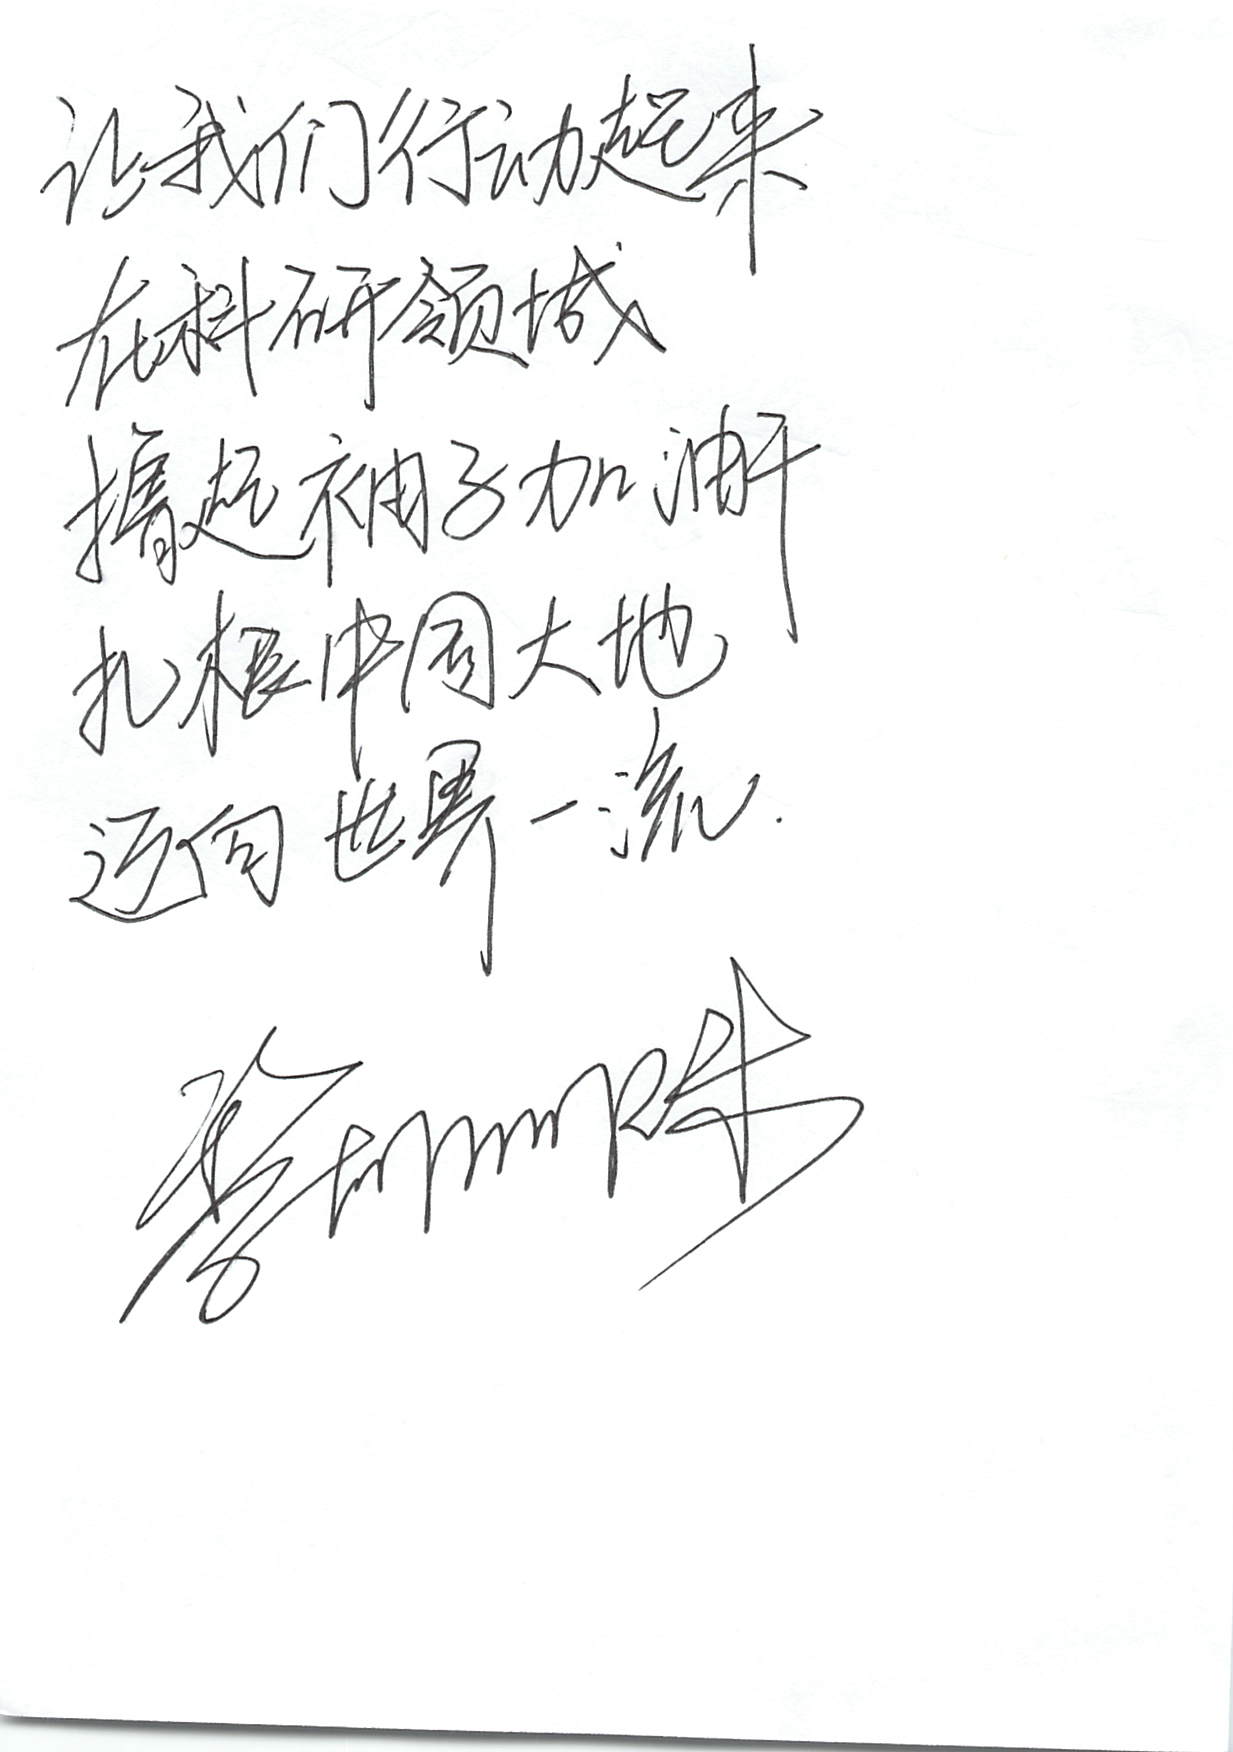 让我们行动起来
在科研领域
撸起袖子加油干
扎根中国大地
迈向世界一流.